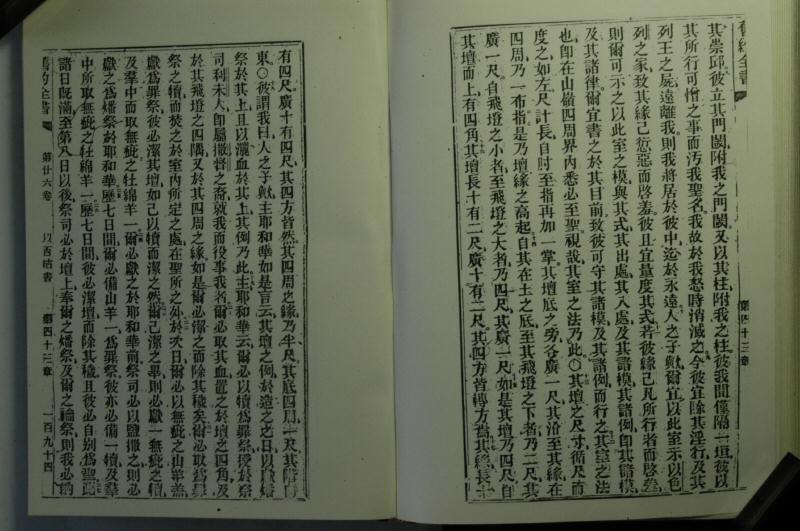 舊約全書
第四十三章
其崇邱彼立其門閾附我之門閾又以其柱附我之柱彼我間僅隔一垣彼以
其所行可憎之事而汚我聖名我故於我怒時消滅之今彼宜除其淫行及其
列王之屍遠離我則我將居於彼中迄於永遠人之子歟爾宜以此室示以色
列之家致其緣己愆惡而啓羞彼且宜量度其式若彼緣己凡所行者而啓羞
則爾可示之以此室之模與其式其出處其入處及其諸模其諸例卽其諸模
及其諸律爾宜書之於其目前致彼可守其諸模及其諸例而行之其室之法
也卽在山嶺四周界內悉必至聖視哉其室之法乃此○其壇之尺寸循尺而
度之如左尺計長自肘至指再加一掌其壇底之旁各廣一尺其沿至其緣在
四周乃一布指是乃壇緣之高起自其在土之底至其飛墱之下者乃二尺其
廣一尺自飛墱之小者至飛墱之大者乃四尺其廣一尺如是其壇乃四尺自
其壇而上有四角其壇長十有二尺廣十有二尺其四方皆轉方焉其緣長十
有四尺廣十有四尺其四方皆然其四周之緣乃半尺其底四周一尺其階向
東○彼謂我曰人之子歟主耶和華如是言云其壇之例於造之之日以獻燔
祭於其上且以灑血於其上其例乃此主耶和華云爾必以犢爲罪祭授於祭
司利未人卽屬撒督之裔就我而役事我者爾必取其血置之於壇之四角及
於其飛墱之四隅又於其四周之緣如是爾必潔之而除其穢矣爾必取爲罪
祭之犢而焚之於室內所定之處在聖所之外於次日爾必以無疵之山羊羔
獻爲罪祭彼必潔其壇如己以犢而潔之然爾己潔之畢則必獻一無疵之犢
及羣中而取無疵之牡綿羊一爾必獻之於耶和華前祭司必以鹽撒之則必
獻之爲燔祭於耶和華一歷七日間爾必備山羊一爲罪祭彼亦必備一犢及羣
中所取無疵之牡綿羊一歷七日間彼必潔壇而除其穢且彼必自別爲聖
諸日旣滿至第八日以後祭司必於壇上奉爾之燔祭及爾之酬祭則我必納
舊約全書
第廿六卷
以西結書
第四十三章
一百九十四